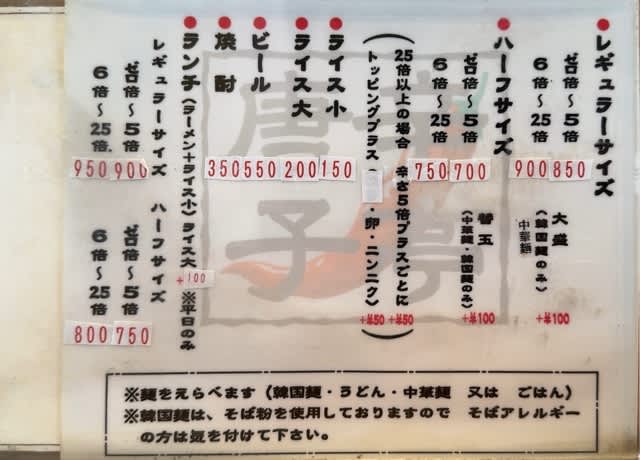 ●レギュラーサイズ
ゼロ倍～5倍 850
6倍～25倍 900
大盛
(韓国麺のみ)
中華麺
+¥100
●ハーフサイズ
ゼロ倍～5倍 700
6倍～25倍 750
替玉
(中華麺・韓国麺のみ)
+¥100
(25倍以上の場合 辛さ5倍プラスごとに +¥50
トッピングプラス( ・卵・ニンニク) +¥50)
●ライス小 150
●ライス大 200
●ビール 550
●焼酎 350
●ランチ(ラーメン+ライス小)ライス大 +100 ※平日のみ
レギュラーサイズ
ゼロ倍～5倍 900
6倍～25倍 950
ハーフサイズ
ゼロ倍～5倍 750
6倍～25倍 800
※麺をえらべます(韓国麺・うどん・中華麺 又は ごはん)
※韓国麺は、そば粉を使用しておりますので そばアレルギー
の方は気を付けて下さい。
唐子
亭